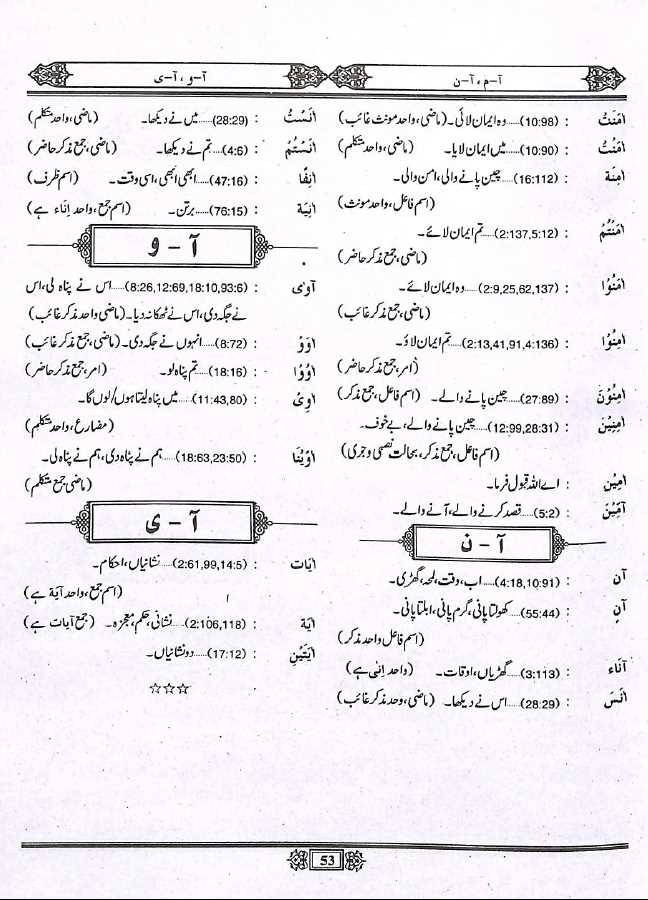 آ-م، آ-ن
آ-و، آ-ی
اٰمَنَتْ : (10:98).....وہ ایمان لائی۔ (ماضی، واحد مونث غائب)
اٰمَنْتُ : (10:90).....میں ایمان لایا۔ (ماضی، واحد متکلم)
اٰمِنَة : (16:112).....چین پانے والی، امن والی۔
(اسم فاعل، واحد مونث)
اٰمَنْتُمْ : (2:137,5:12).....تم ایمان لائے۔
(ماضی، جمع مذکر حاضر)
اٰمَنُوْا : (2:9,25,62,137).....وہ ایمان لائے۔
(ماضی، جمع مذکر غائب)
اٰمِنُوْا : (2:13,41,91,4:136).....تم ایمان لاؤ۔
(امر، جمع مذکر حاضر)
اٰمِنُوْنَ : (27:89).....چین پانے والے۔ (اسم فاعل، جمع مذکر)
اٰمِنِیْنَ : (12:99,28:31).....چین پانے والے، بے خوف۔
(اسم فاعل، جمع مذکر، بحالت نصبی و جری)
اٰمِیْن : اے اللہ قبول فرما۔
آمِّیْنَ : (5:2).....قصد کرنے والے، آنے والے۔
آ - ن
آن : (4:18,10:91).....اب، وقت، لمحہ، گھڑی۔
آنٍ : (55:44).....کھولتا پانی، گرم پانی، ابلتا پانی۔
(اسم فاعل واحد مذکر)
آنَاء : (3:113).....گھڑیاں، اوقات۔ (واحد اِنٰی ہے)
اٰنَسَ : (28:29).....اس نے دیکھا۔ (ماضی، وحد مذکر غائب)
اٰنَسْتُ : (28:29).....میں نے دیکھا۔ (ماضی، واحد متکلم)
اٰنَسْتُمْ : (4:6).....تم نے دیکھا۔ (ماضی، جمع مذکر حاضر)
اٰنِفًا : (47:16).....ابھی ابھی، اسی وقت۔ (اسم ظرف)
اٰنِیَة : (76:15).....برتن۔ (اسم جمع، واحد اِنَاء ہے)
آ - و
آوٰی : (8:26,12:69,18:10,93:6).....اس نے پناہ لی، اس
نے جگہ دی، اس نے ٹھکانہ دیا۔ (ماضی واحد مذکر غائب)
اٰوَوْ : (8:72).....انہوں نے جگہ دی۔ (ماضی، جمع مذکر غائب)
اٰوُوْا : (18:16).....تم پناہ لو۔ (امر، جمع مذکر حاضر)
اٰوِیْ : (11:43,80).....میں پناہ لیتا ہوں/لوں گا۔
(مضارع، واحد متکلم)
اٰوَیْنَا : (18:63,23:50).....ہم نے پناہ دی، ہم نے پناہ لی۔
(ماضی جمع متکلم)
آ - ی
اٰیات : (2:61,99,14:5).....نشانیاں، احکام۔
(اسم جمع، واحد آیۃ ہے)
اٰیَة : (2:106,118).....نشانی، حکم، معجزہ۔ (جمع آیات ہے)
اٰیَتَیْنِ : (17:12).....دو نشانیاں۔
☆☆☆
53